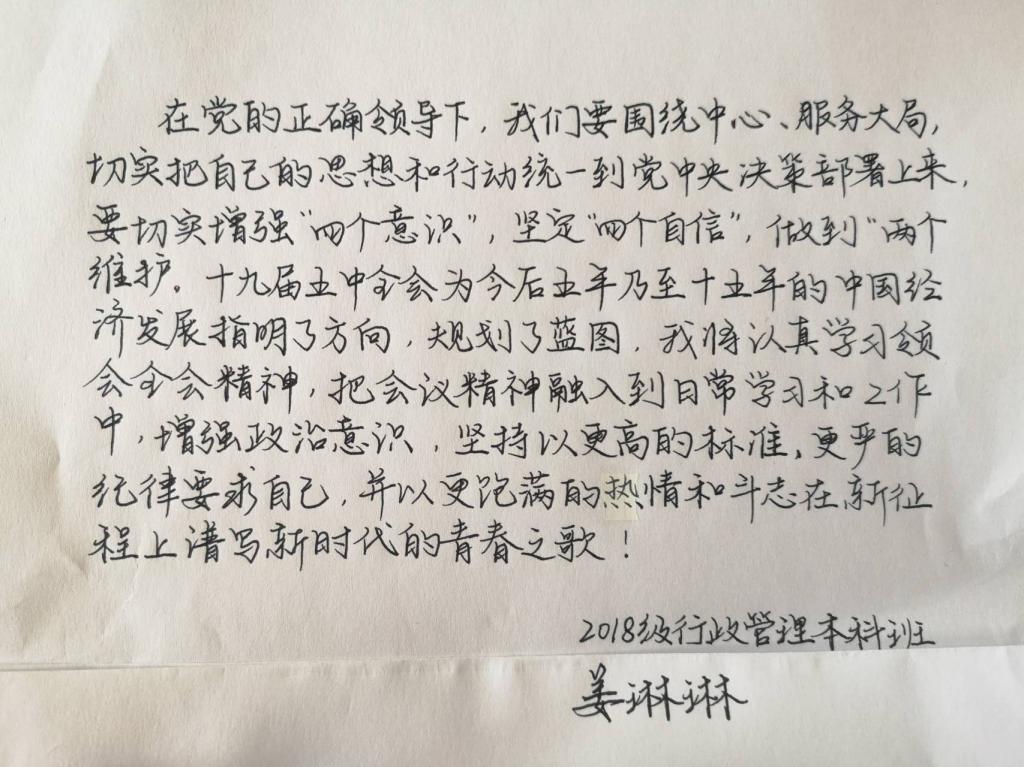 在党的正确领导下，我们要围绕中心、服务大局，
切实把自己的思想和行动统一到党中央决策部署上来，
要切实增强“四个意识”，坚定“四个自信”，做到“两个
维护。十九届五中全会为今后五年乃至十五年的中国经
济发展指明了方向，规划了蓝图，我将认真学习领
会全会精神，把会议精神融入到日常学习和工作
中，增强政治意识，坚持以更高的标准、更严的
纪律要求自己，并以更饱满的热情和斗志在新征
程上谱写新时代的青春之歌！
2018级行政管理本科班
姜琳琳